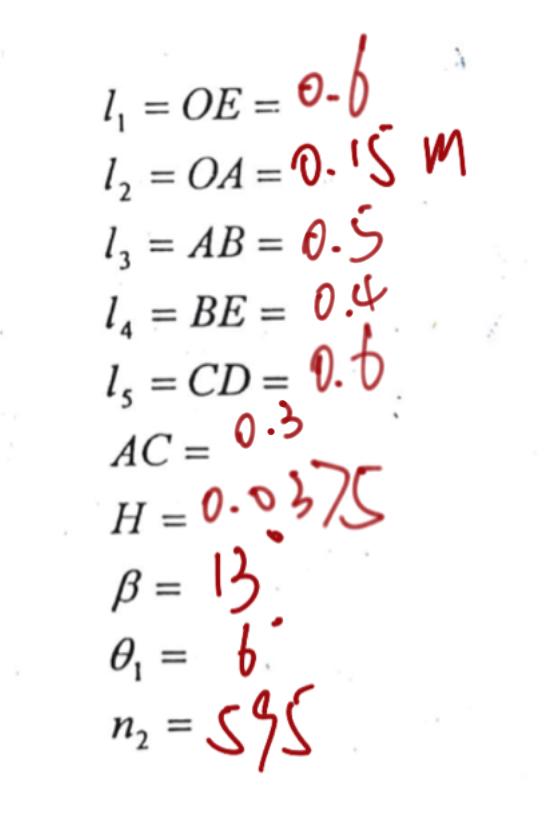 l₁ = OE = 0.6
l₂ = OA = 0.15 m
l₃ = AB = 0.5
l₄ = BE = 0.4
l₅ = CD = 0.6
AC = 0.3
H = 0.0375
β = 13°
θ₁ = 6°
n₂ = 595